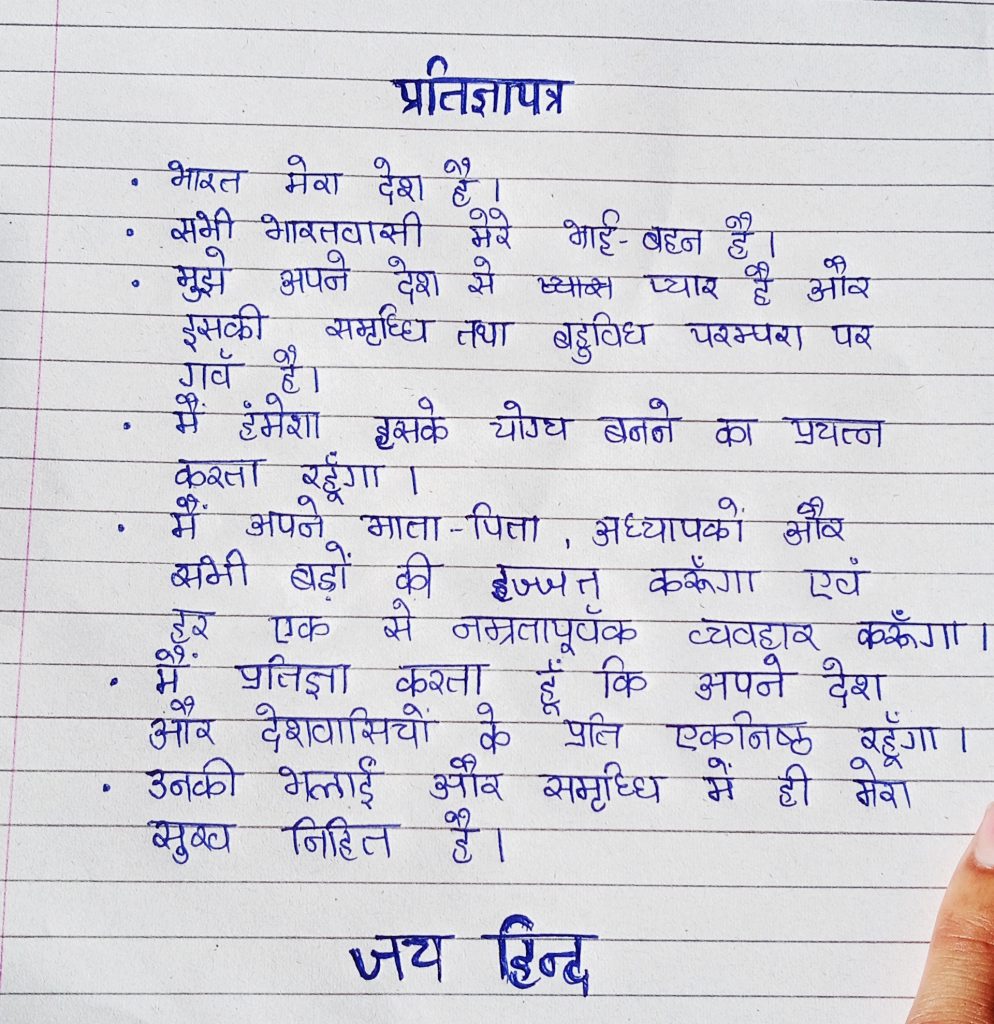 प्रतिज्ञापत्र
• भारत मेरा देश है।
• सभी भारतवासी मेरे भाई-बहन है।
• मुझे अपने देश से प्यार है और
इसकी समृध्धि तथा बहुविध परम्परा पर
गर्व है।
• मैं हंमेशा इसके योग्य बनने का प्रयत्न
करता रहूँगा।
• मैं अपने माता-पिता, अध्यापकों और
सभी बड़ों की इज्जत करूँगा एवं
हर एक से नम्रतापूर्वक व्यवहार करूँगा।
• मैं प्रतिज्ञा करता हूँ कि अपने देश
और देशवासियों के प्रति एकनिष्ठ रहूँगा।
• उनकी भलाई और समृध्धि में ही मेरा
सुख निहित है।
जय हिन्द